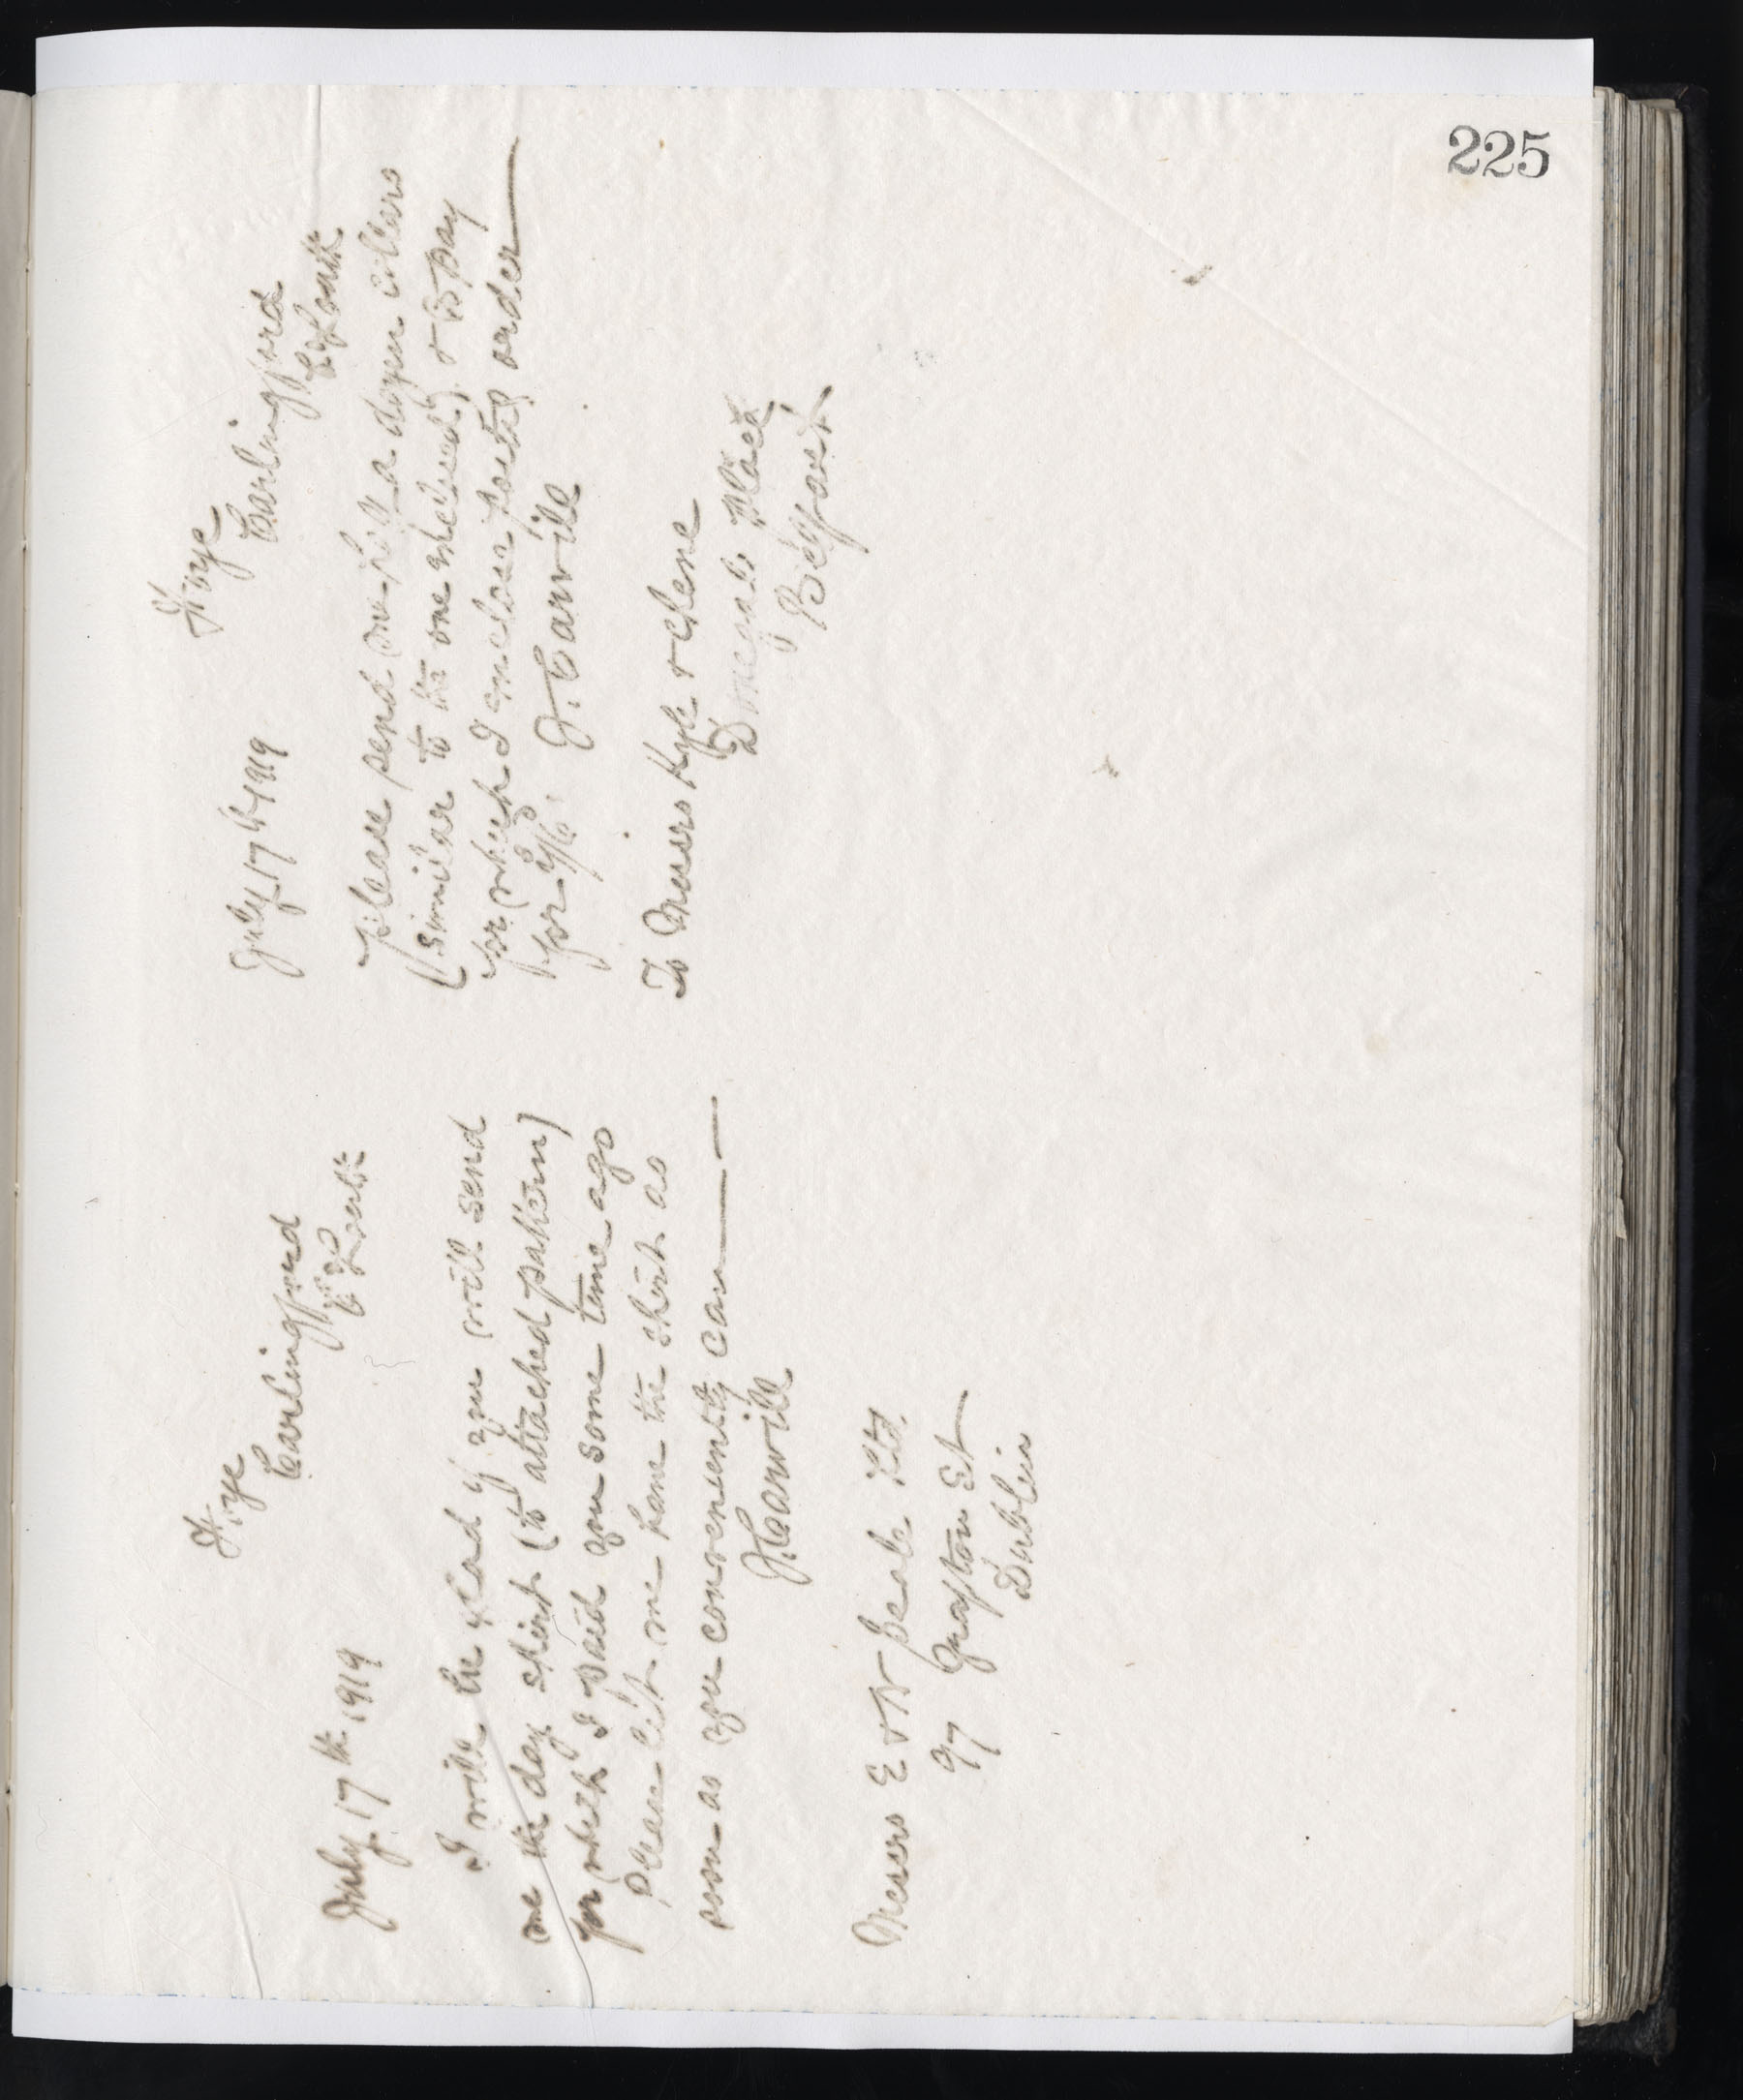 225
Fire
Carlingford
Co Louth
July 17th 1919
I will be glad if you will send
me the day shirt (to attached pattern)
for which I paid you some time ago
Please let me have the shirt as
soon as you conveniently can
J. Carvill
Messrs E & W Seale Ltd.
97 Grafton St
Dublin
Carlingford
Co Louth
July 17th 1919
Please send me ½ a dozen collars
(similar to the one enclosed) & to pay
for which I enclose postal order
for
J. Carvill
To Messrs Hyde & Chene
Donegall Place
Belfast